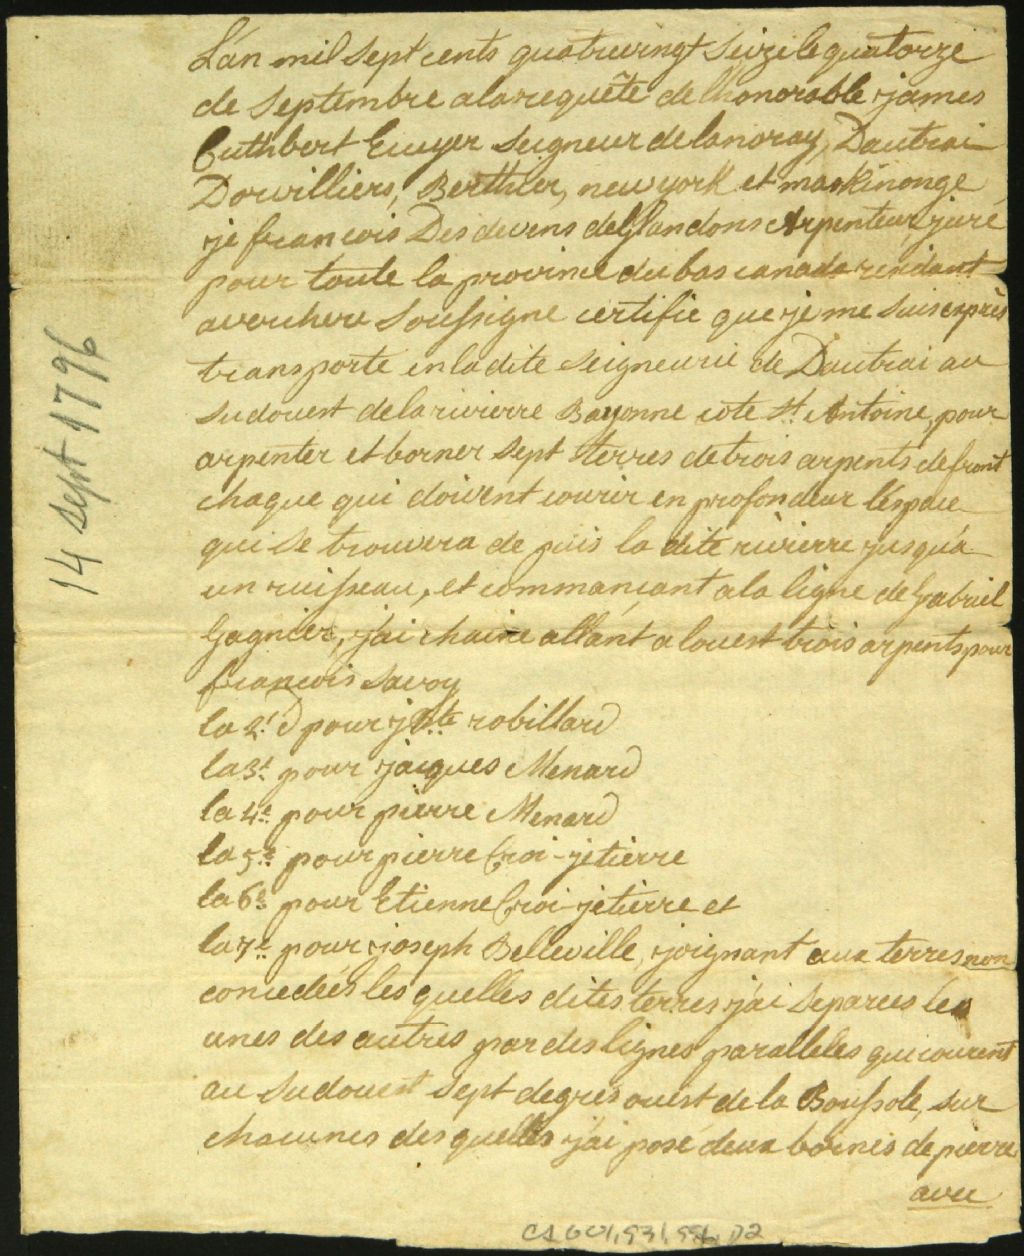 L'an mil sept cents quatrevingt seize le quatorze
de Septembre a la requête de l'honorable james
Cuthbert Ecuyer Seigneur de lanoray, Dautrai
Dorvilliers, Berthier, new york et maskinonge
je francois Desdevens de Glandons Arpenteur juré
pour toute la province du bas canada residant
a Soussigne certifie que je me suis exprès
transporte en la dite Seigneurie de Dautrai au
sudouest de la rivierre Bayonne cote St. Antoine, pour
arpenter et borner sept terres de trois arpents de front
chaque qui doivent courir en profondeur l'espace
qui se trouvera de puis la dite rivierre jusqu'a
un ruisseau, et commançant a la ligne de Gabriel
Gagnier, j'ai chaine allant a louest trois arpents pour
françois Savoy
la 2.e pour j Bte robillard
la 3.e pour jacques Menard
la 4.e pour pierre Menard
la 5.e pour pierre Croi-jetierre
la 6.e pour Etienne Croi-jetierre et
la 7.e pour joseph Belleville, joignant aux terres non
concedées les quelles dites terres j'ai separees les
unes des autres par des lignes paralleles qui courent
au Sudouest sept degres ouest de la Boussole, sur
chacunes des quelles j'ai posé deux bornes de pierre
avec
14 Sept 1796
CA 601,931,994, D2